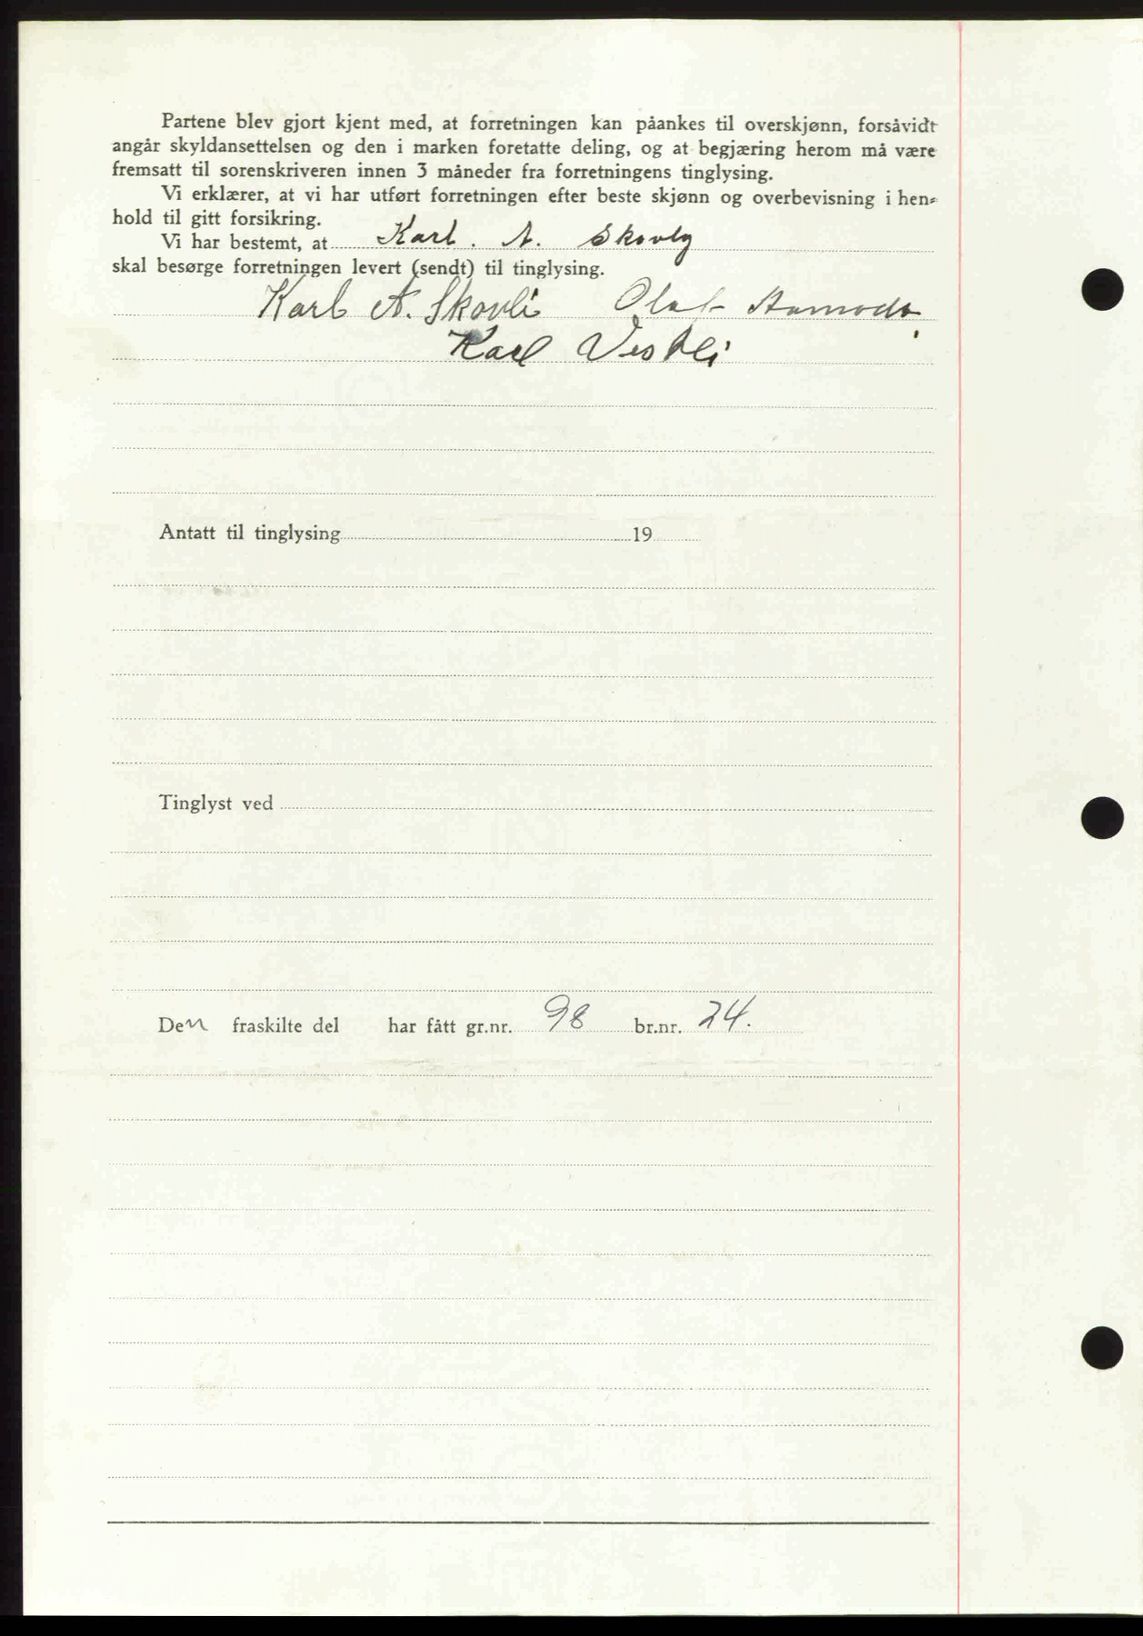 Partene blev gjort kjent med, at forretningen kan påankes til overskjønn, forsåvidt
angår skyldansettelsen og den i marken foretatte deling, og at begjæring herom må være
fremsatt til sorenskriveren innen 3 måneder fra forretningens tinglysing.
Vi erklærer, at vi har utført forretningen efter beste skjønn og overbevisning i hen-
hold til gitt forsikring.
Vi har bestemt, at Karl. A. Skovly
skal besørge forretningen levert (sendt) til tinglysing.
Karl A. Skovli Olaf
Karl Vestli
Antatt til tinglysing 19
Tinglyst ved
Den fraskilte del har fått gr.nr. 98 br.nr. 24.